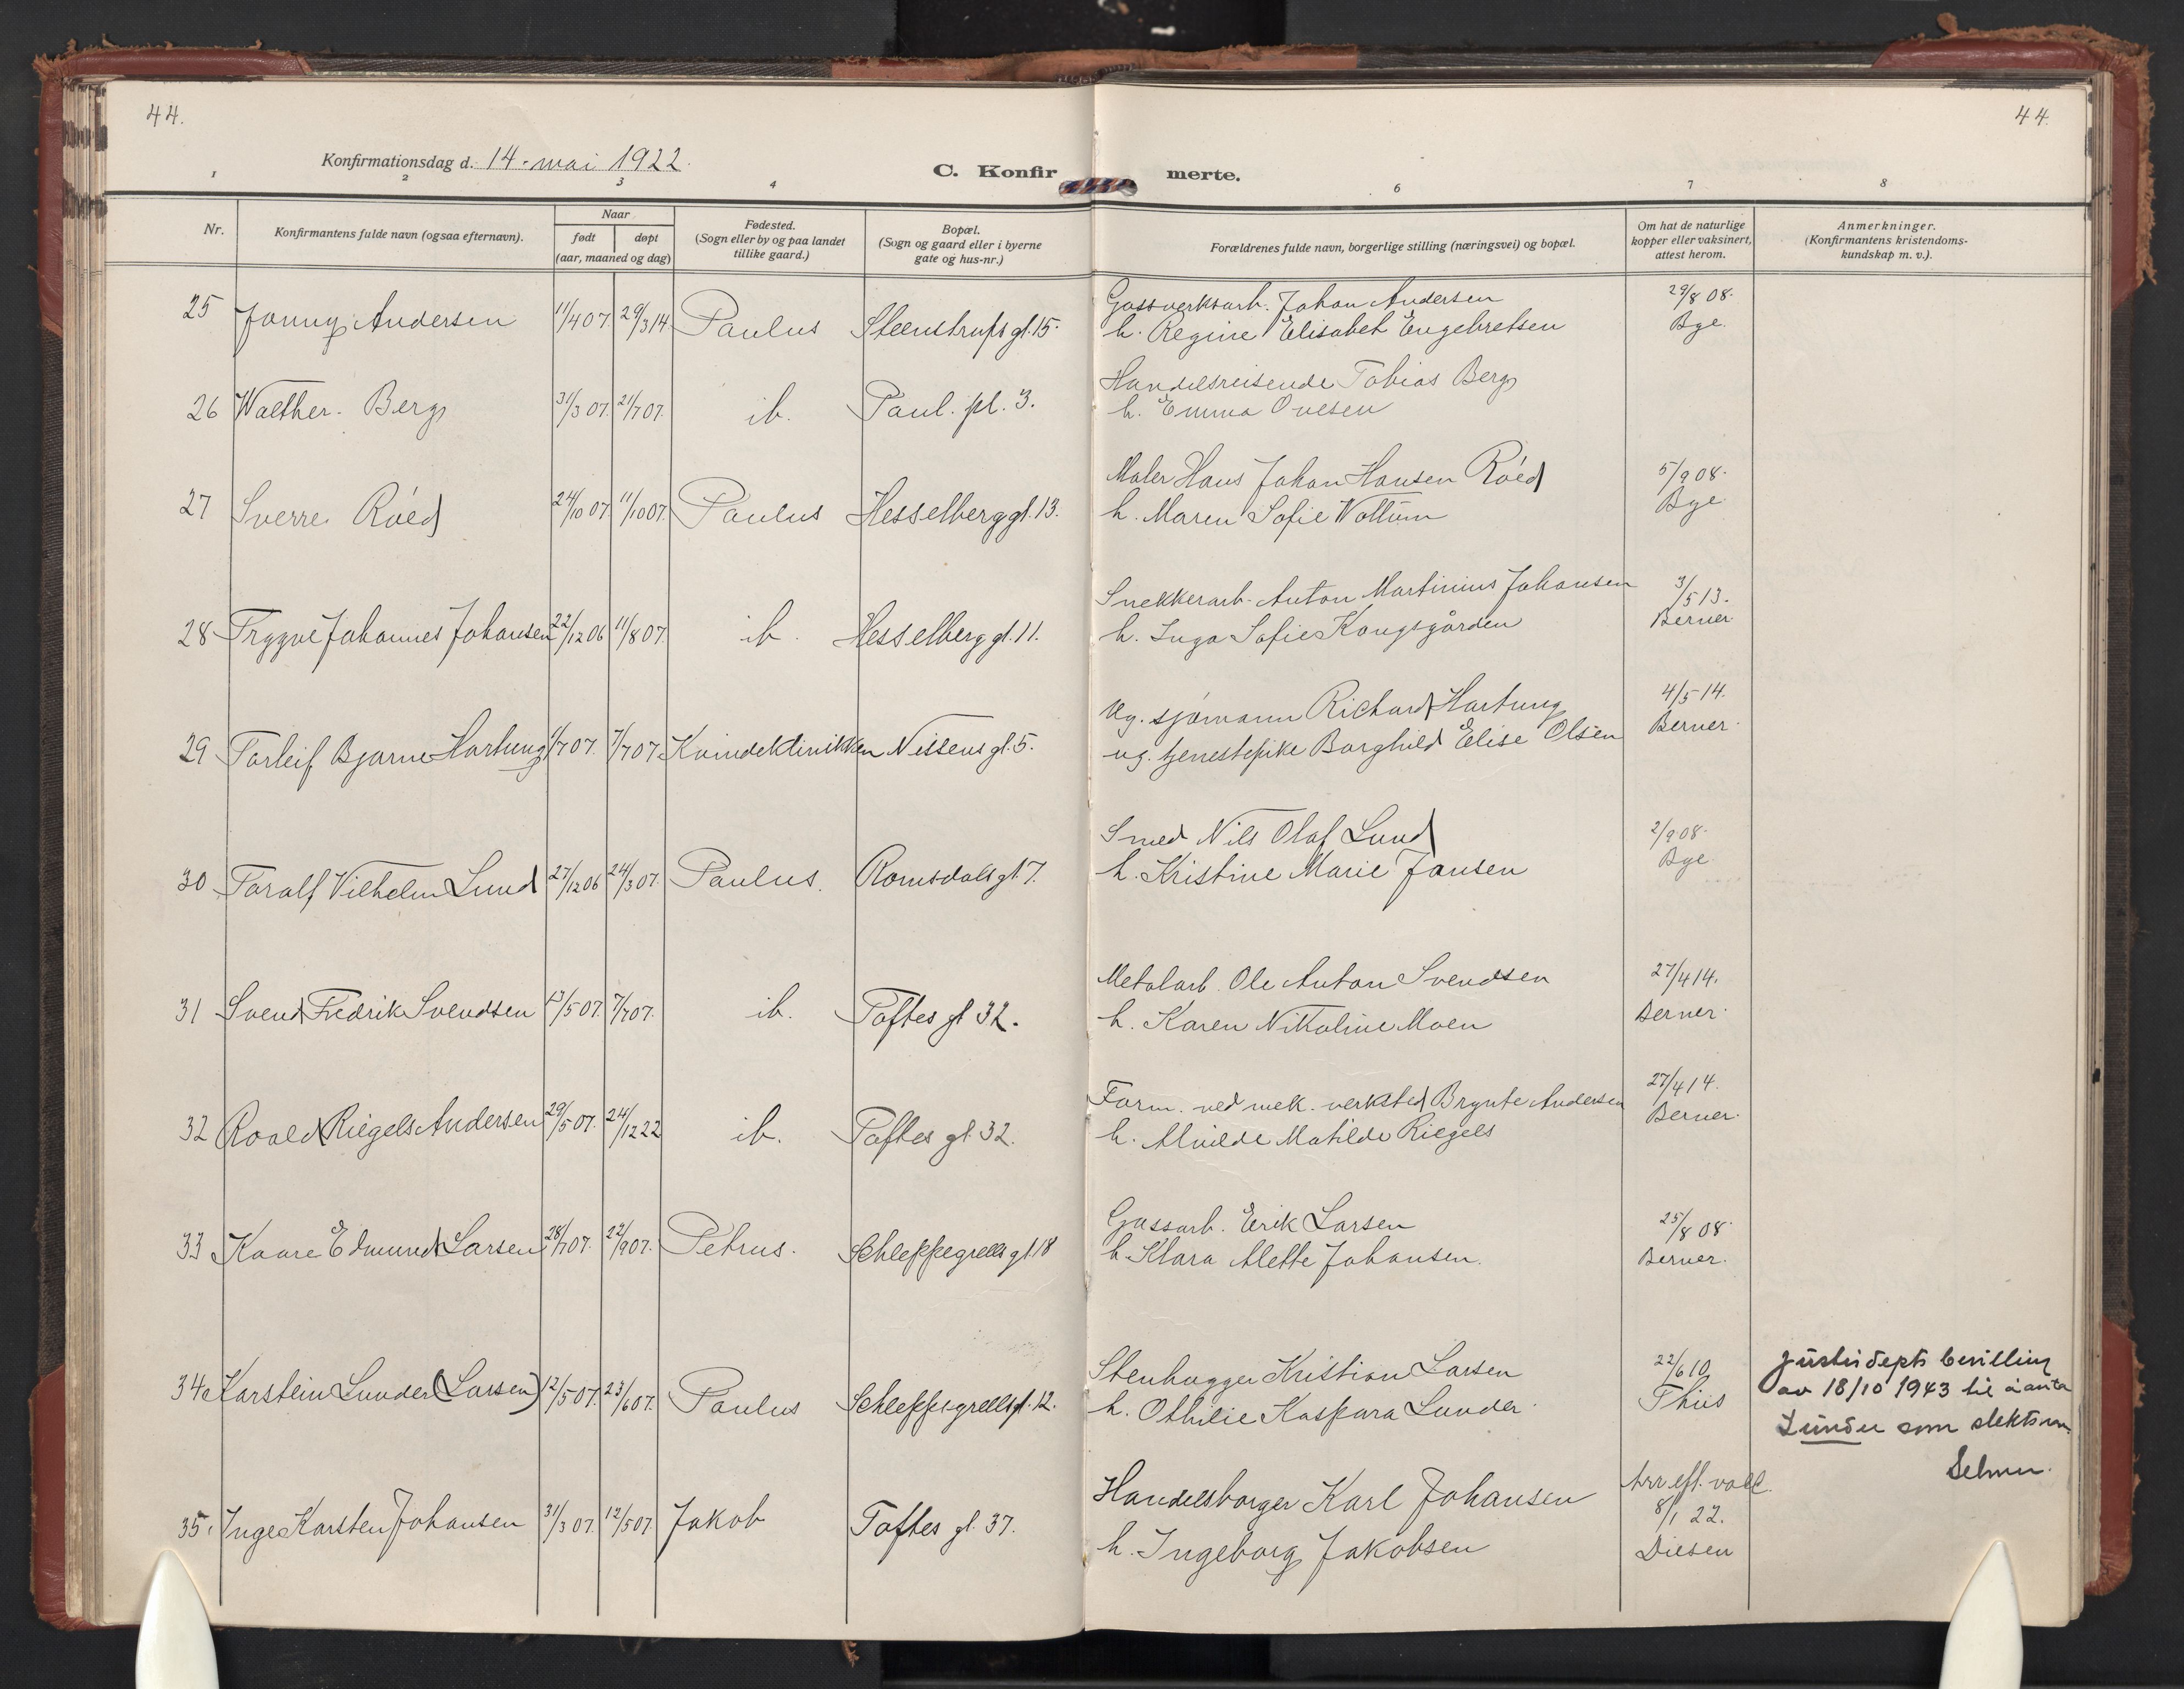 44.
44.
Konfirmationsdag d. 14. mai 1922.
C. Konfirmerte.
1 2 3 4 6 7 8
Nr.
Konfirmantens fulde navn (ogsaa efternavn).
Naar
født
døpt
(aar, maaned og dag)
Fødested.
(Sogn eller by og paa landet
tillike gaard.)
Bopæl.
(Sogn og gaard eller i byerne
gate og hus-nr.)
Forældrenes fulde navn, borgerlige stilling (næringsvei) og bopæl.
Om hat de naturlige
kopper eller vaksinert,
attest herom.
Anmerkninger.
(Konfirmantens kristendoms-
kundskap m. v.).
25 Jonny Andersen 11/4 07. 29/3 14. Paulus Steenstrups gt. 15.
Gassverksarb. Johan Andersen
h. Regine Elisabet Engebretsen
29/8 08.
Bye.
26 Walther Berg 31/3 07. 21/7 07. ib. Paul. pl. 3.
Handelsreisende Tobias Berg
h. Emma Ovesen
27 Sverre Róed 24/10 07. 11/10 07. Paulus Hesselberg gt. 13.
Maler Hans Johan Hansen Róed
h. Maren Sofie Wottum
5/9 08.
Bye.
28 Trygve Johannes Johansen 22/12 06 11/8 07. ib. Hesselberg gt. 11.
Snekkerarb. Anton Martinius Johansen
h. Inga Sofie Kongsgården
3/5 13.
Berner
29 Torleif Bjarne Hartung 1/7 07. 7/7 07 Kvindeklinikken Nissens gt. 5.
Ug. sjømann Richard Hartung
ug. tjenestepike Borghild Elise Olsen
4/5 14.
Berner.
30 Toralf Vilhelm Lund 27/12 06 24/3 07. Paulus. Romsdals gt. 7.
Smed Nils Olaf Lund
h. Kristine Marie Jansen
2/9 08.
Bye
31 Svend Fredrik Svendsen 13/5 07. 7/7 07. ib. Toftes gt 32.
Metalarb. Ole Anton Svendsen
h. Karen Nikoline Moen
27/4 14.
Berner.
32 Roald Riegels Andersen 29/5 07. 24/12 22 ib. Toftes gt. 32.
Form. ved mek. verksted Brynte Andersen
h. Alvilde Matilde Riegels
27/4 14.
Berner.
33 Kaare Edmund Larsen 28/7 07. 22/9 07. Petrus. Schleppegrells gt. 18
Gassarb. Erik Larsen
h. Klara Alette Johansen.
25/8 08.
Berner.
34 Karstein Lunder (Larsen) 12/5 07. 23/6 07. Paulus Schleppegrells gt. 12.
Stenhugger Kristian Larsen
h. Othilie Kaspara Lunder.
22/6 10
Thiis
Justisdepts bevilling
av 18/10 1943 til å anta
Lunder som slektsnavn.
35. Inge Karsten Johansen 31/3 07. 12/5 07. Jakob Toftes gt. 37.
Handelsborger Karl Johansen
h. Ingeborg Jakobsen
Arr eft. vacc.
8/1 22.
Diesen